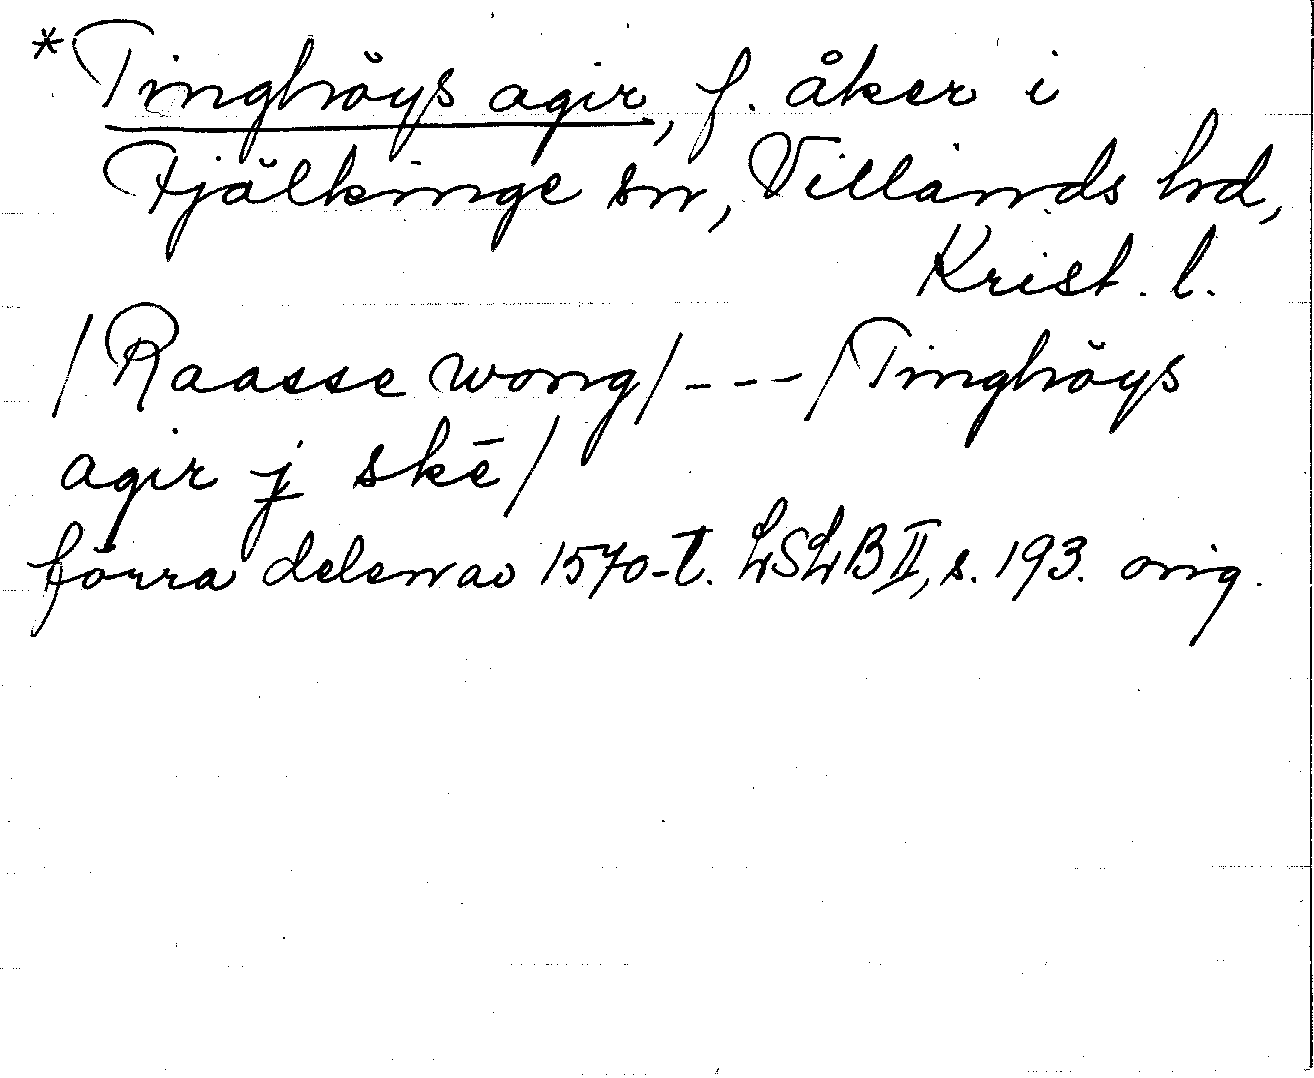 *Tinghöys agir, f. åker i
Fjälkinge sn, Villands hd,
Krist. l.
/Raasse wong/---/Tinghöys
agir j skē/
förra delen av 1570-t. LSLB II, s. 193. orig.